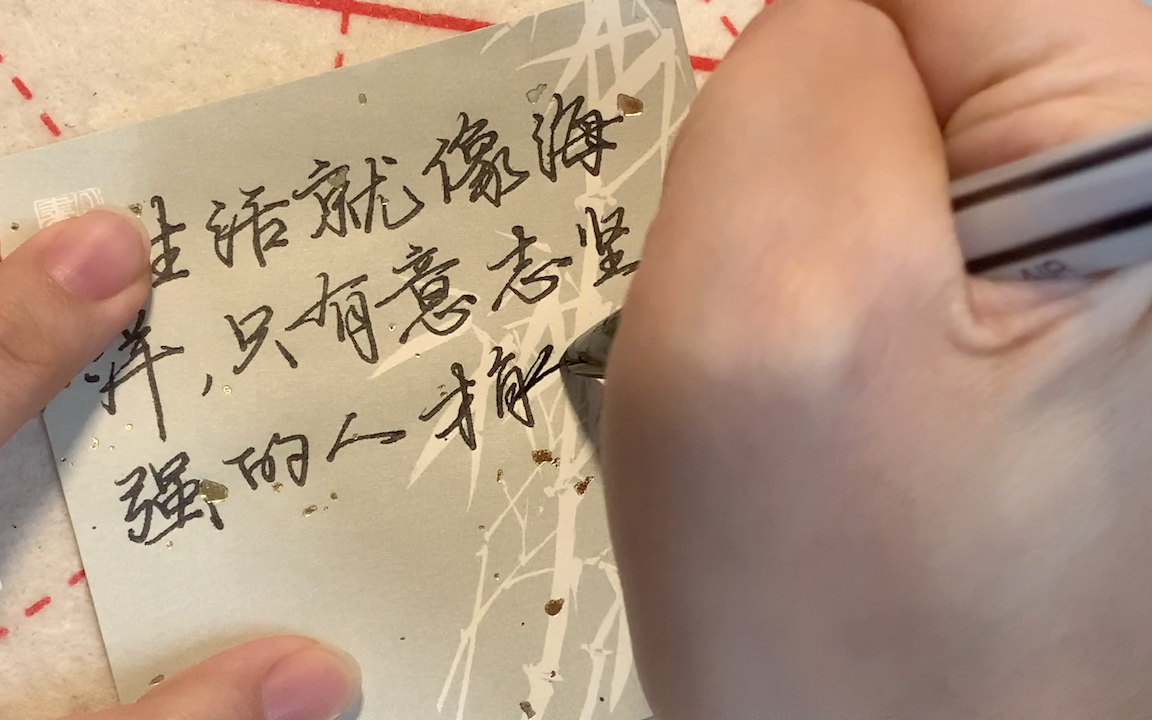 生活就像海
洋，只有意志坚
强的人才